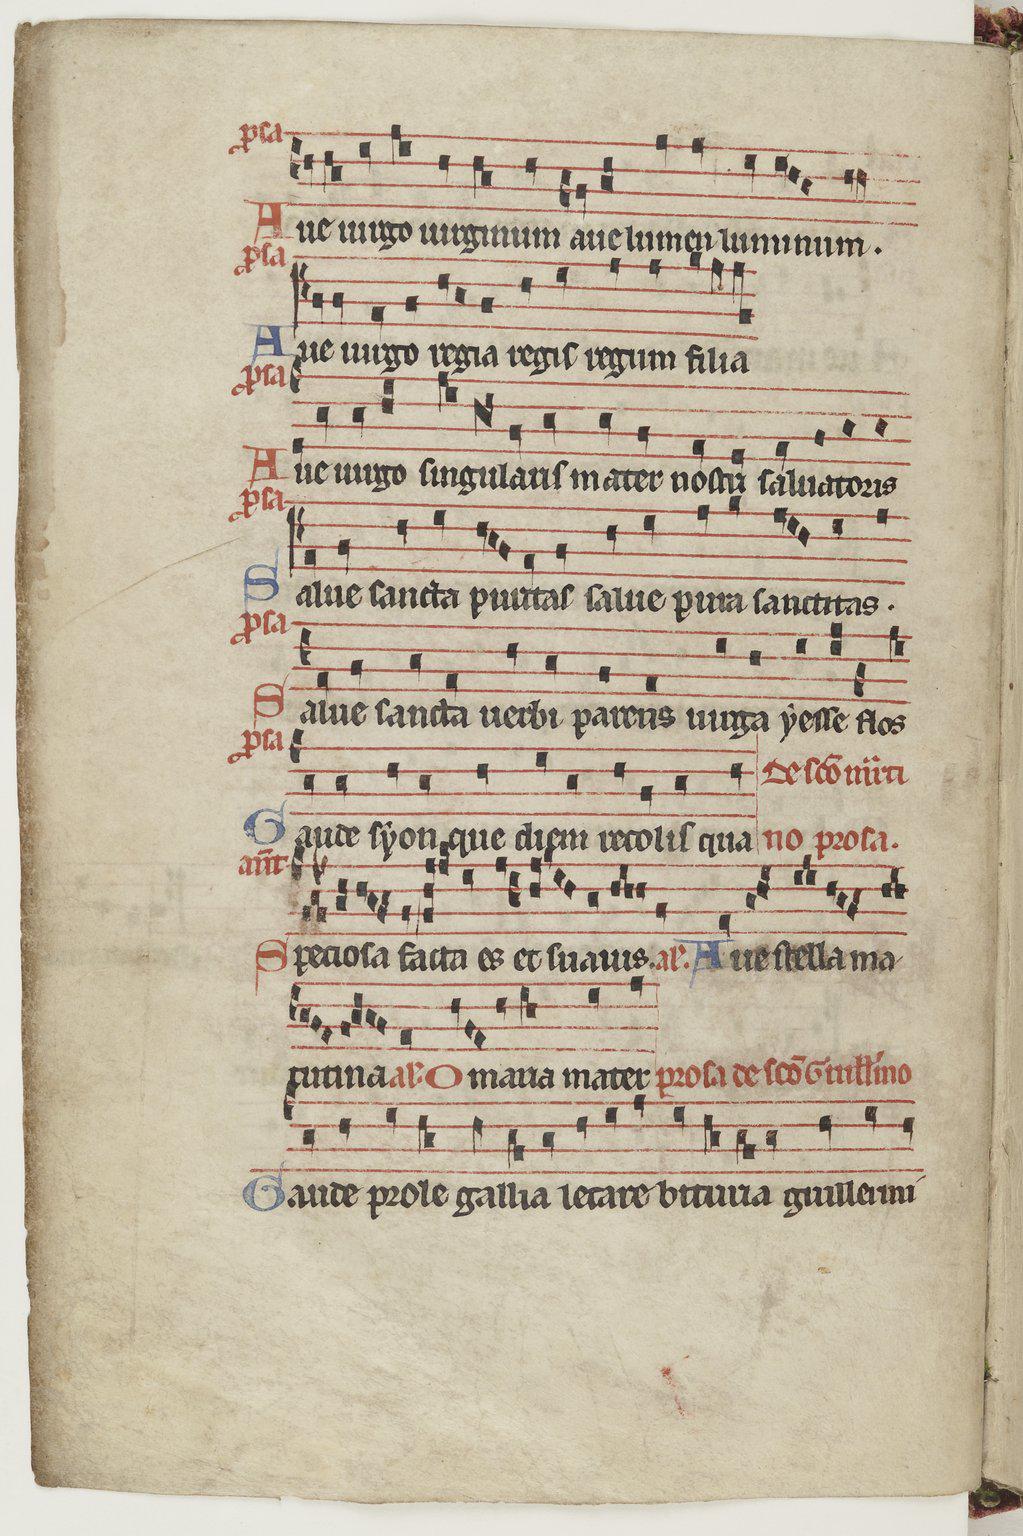 ꝓsa
Aue uirgo uirginum aue lumen luminum.
ꝓsa
Aue uirgo regia regis regum filia
ꝓsa
Aue uirgo singularis mater nostri saluatoris
ꝓsa
Salue sancta puritas salue pura sanctitas.
ꝓsa
Salue sancta uerbi parens uirga ẏesse flos
ꝓsa
De scō
Gaude sẏon que diem recolis qua no prosa.
Speciosa facta es et suauis. Aue stella ma-
tutina O maria mater prosa de scō Guill'mo
Gaude prole gallia letare bituria guillermi